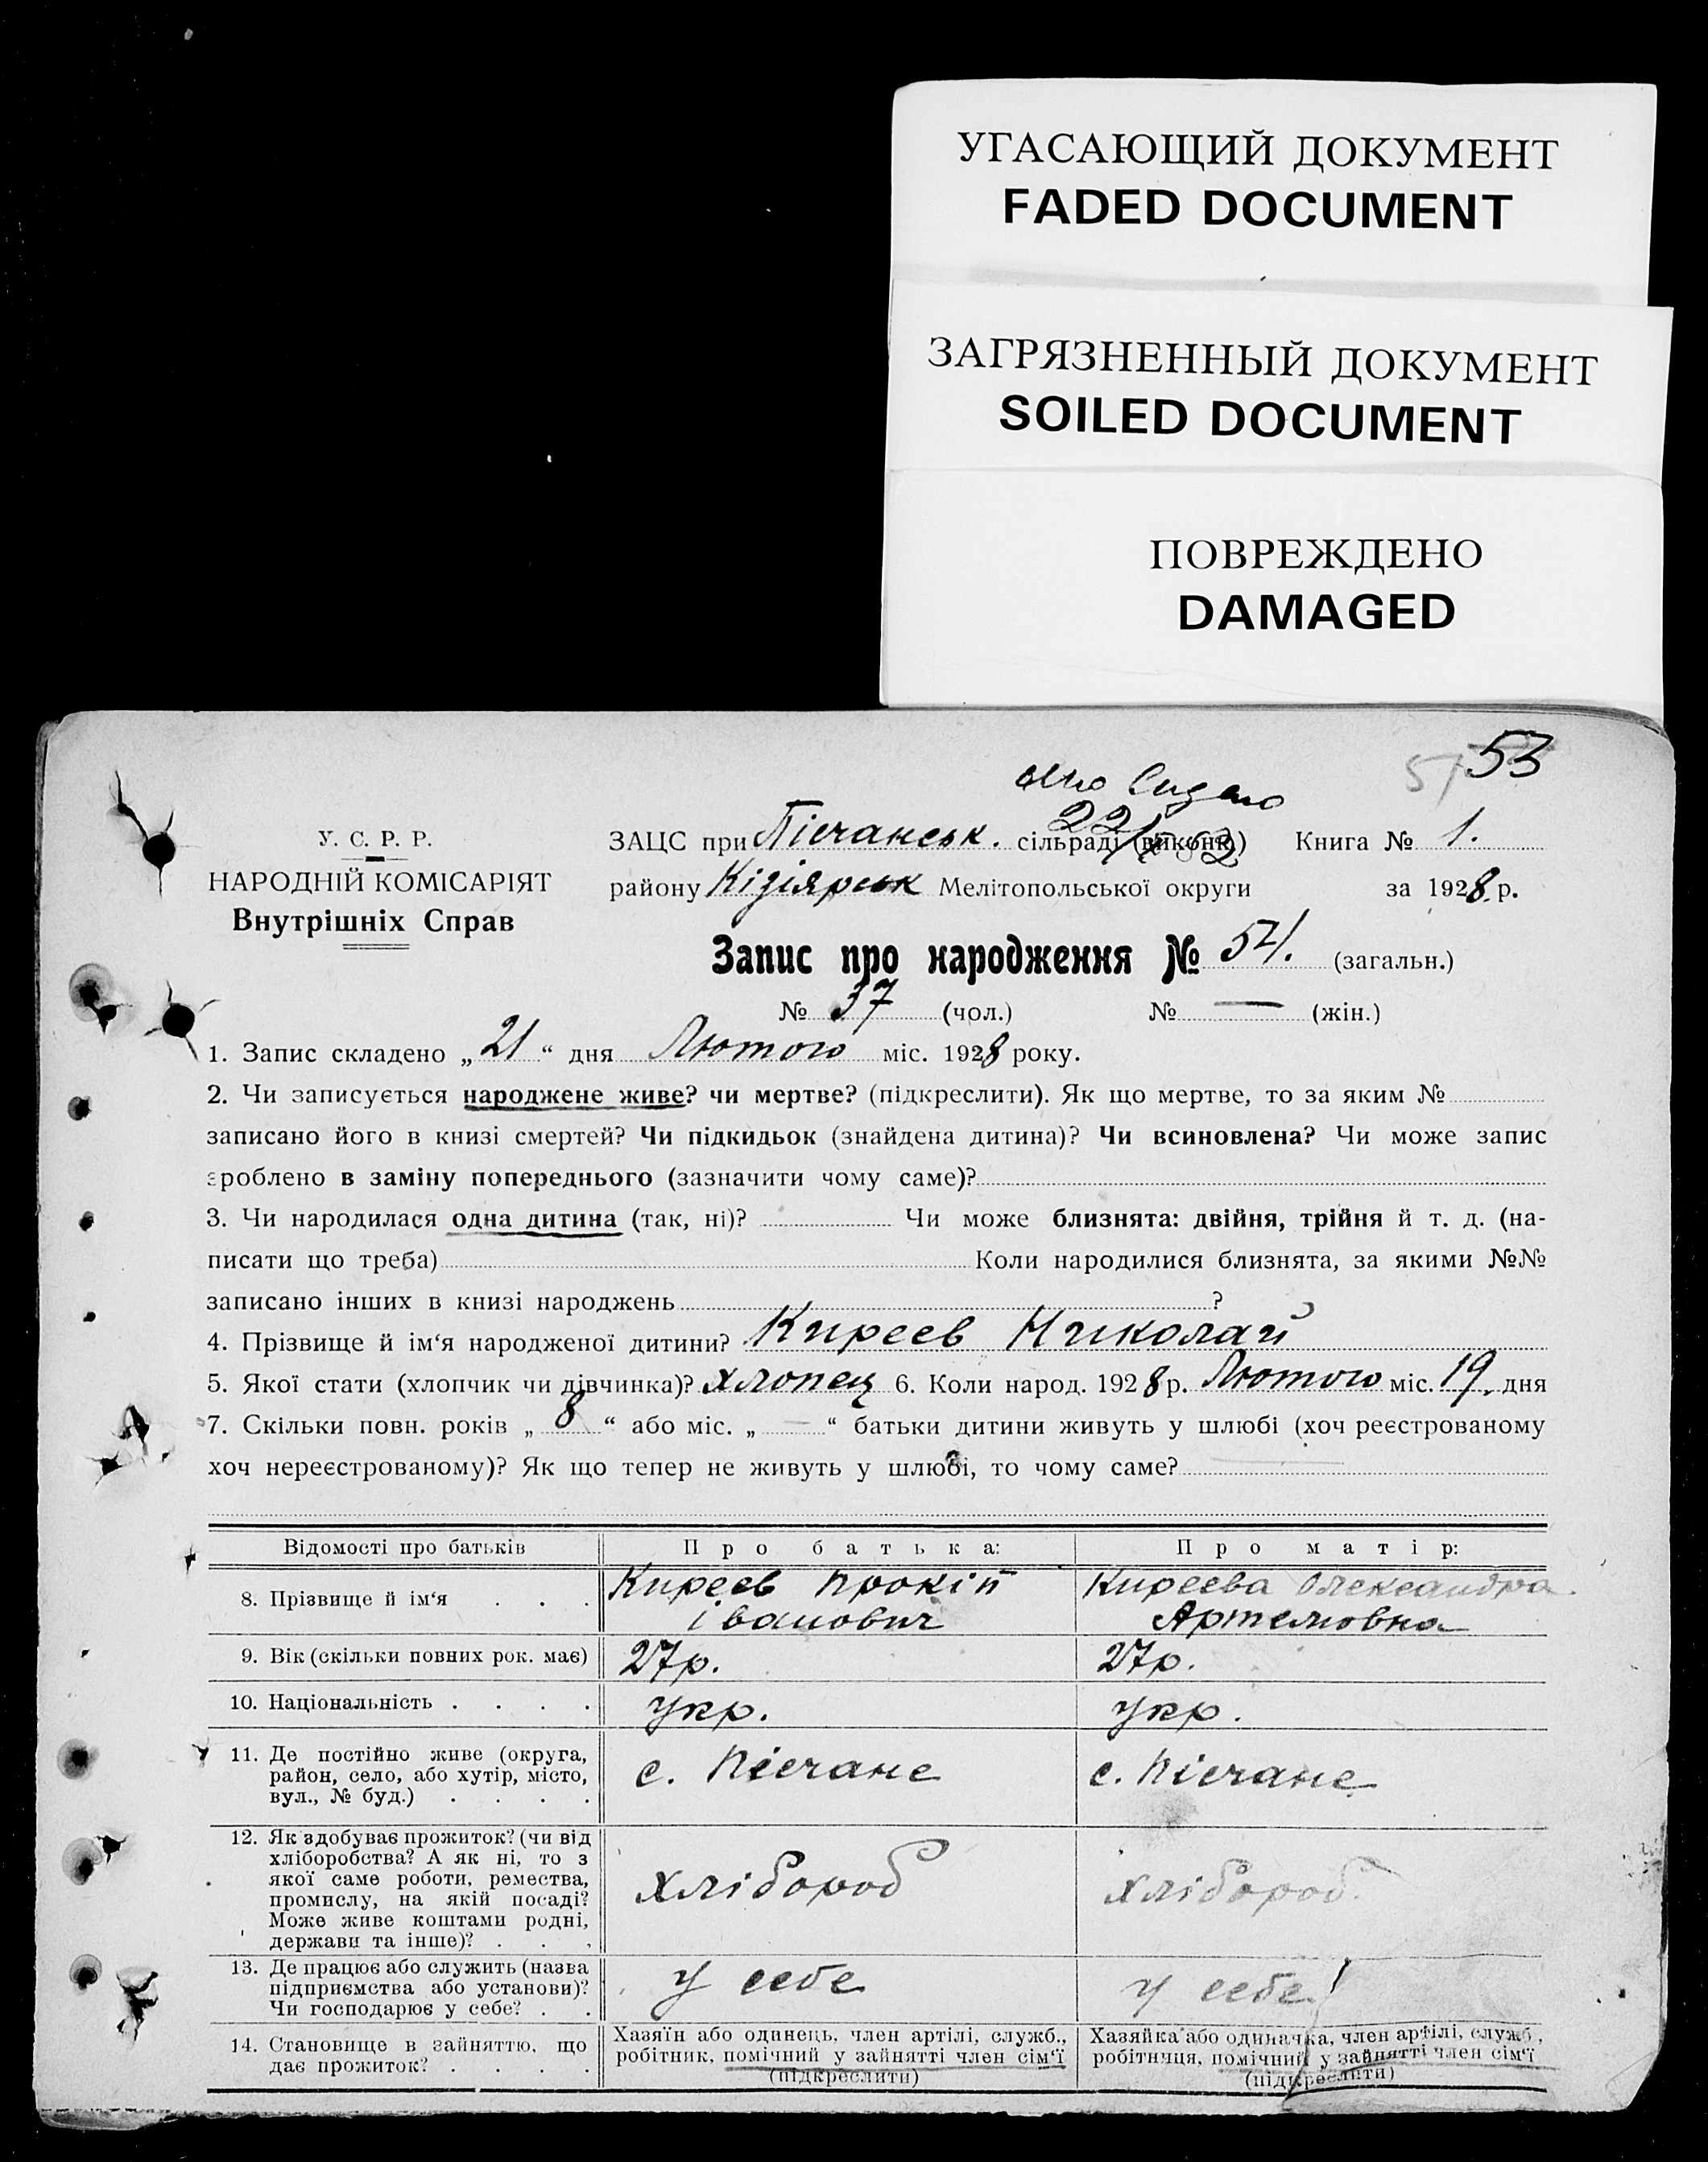 УГАСАЮЩИЙ ДОКУМЕНТ
FADED DOCUMENT
ЗАГРЯЗНЕННЫЙ ДОКУМЕНТ
SOILED DOCUMENT
ПОВРЕЖДЕНО
DAMAGED
53
У. С. Р. Р.
НАРОДНІЙ КОМІСАРІЯТ
Внутрішніх Справ
ЗАЦС при Пісчанськ. сільраді (виконк.) Книга № 1.
району Кізіярськ Мелітопольської округи за 1928 р.
Запис про народження № 54. (загальн.)
№ 37 (чол.) № — (жін.)
1. Запис складено „21“ дня Лютого міс. 1928 року.
2. Чи записується народжене живе? чи мертве? (підкреслити). Як що мертве, то за яким №
записано його в книзі смертей? Чи підкидьок (знайдена дитина)? Чи всиновлена? Чи може запис
зроблено в заміну попереднього (зазначити чому саме)?
3. Чи народилася одна дитина (так, ні)? Чи може близнята: двійня, трійня й т. д. (на-
писати що треба) Коли народилися близнята, за якими №№
записано інших в книзі народжень ?
4. Прізвище й ім‘я народженої дитини? Киреев Николай
5. Якої стати (хлопчик чи дівчинка)? хлопец 6. Коли народ. 1928 р. Лютого міс. 19. дня
7. Скільки повн. років „8“ або міс. „—“ батьки дитини живуть у шлюбі (хоч реєстрованому
хоч нереєстрованому)? Як що тепер не живуть у шлюбі, то чому саме?
Відомості про батьків
Про батька:
Про матір:
8. Прізвище й ім‘я . . .
Киреев Прокіп
Іванович
Киреева Олександра
Артемовна
9. Вік (скільки повних рок. має)
27р.
27р.
10. Національність . . . .
укр.
укр.
11. Де постійно живе (округа,
район, село, або хутір, місто,
вул., № буд.) . . . .
с. Пісчане
с. Пісчане
12. Як здобуває прожиток? (чи від
хліборобства? А як ні, то з
якої саме роботи, ремества,
промислу, на якій посаді?
Може живе коштами родні,
держави та інше)? . . .
хлібороб
хлібороб
13. Де працює або служить (назва
підприємства або установи)?
Чи господарює у себе? . .
у себе
у себе
14. Становище в зайняттю, що
дає прожиток? . . . .
Хазяїн або одинець, член артілі, служб.,
робітник, помічний у зайнятті член сім‘ї
(підкреслити)
Хазяйка або одиначка, член артілі, служб.,
робітниця, помічний у зайнятті член сім‘ї
(підкреслити)